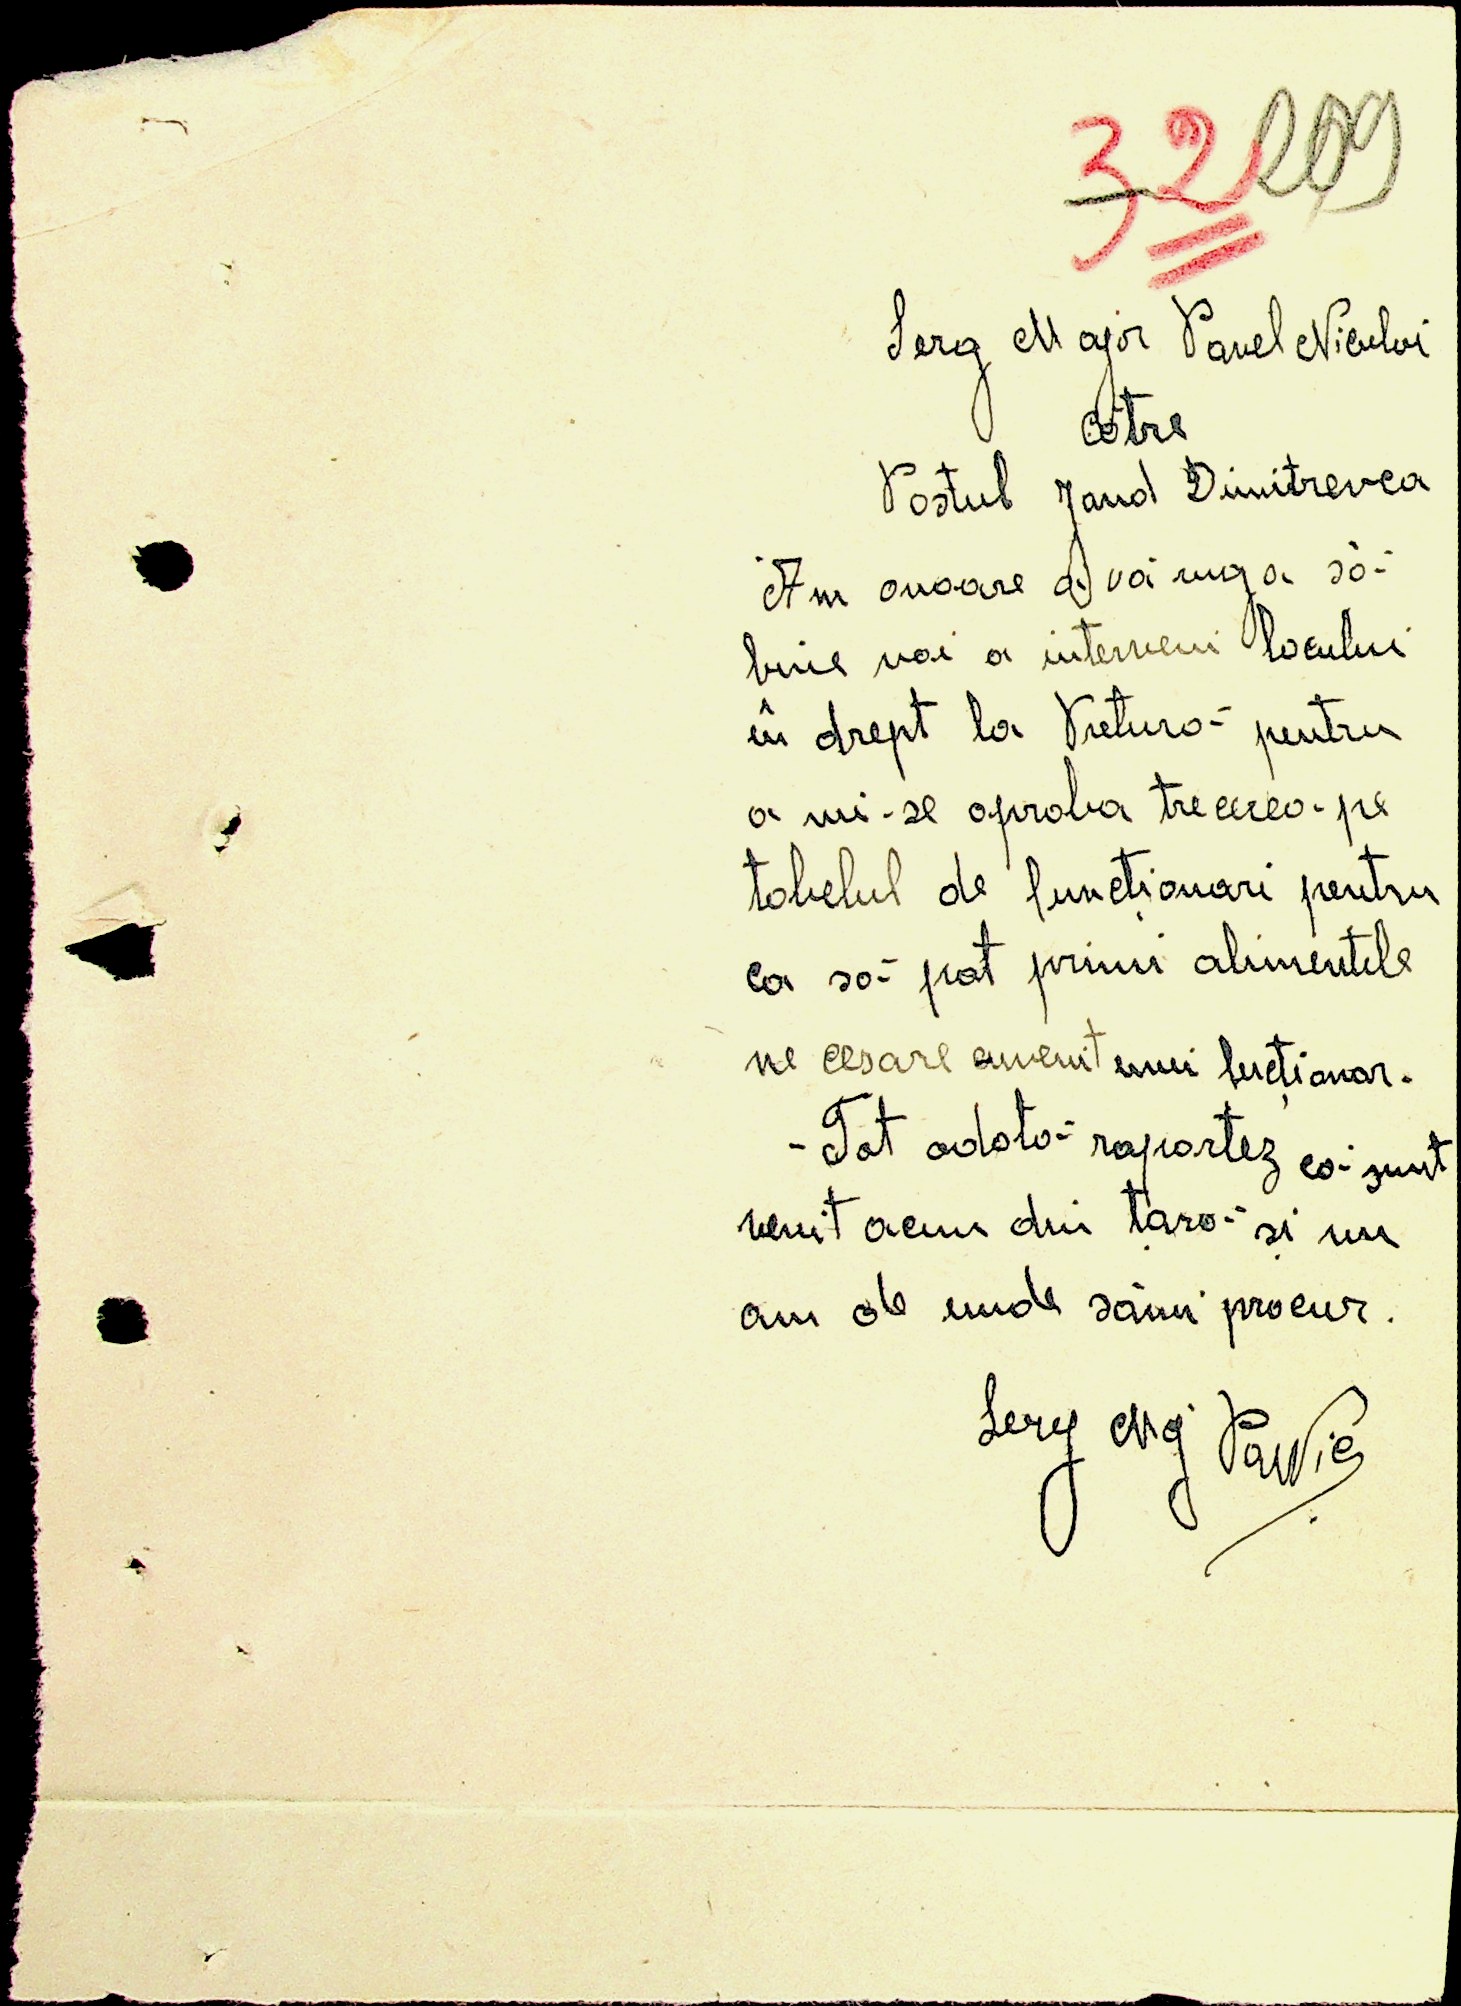 32 209
Serg Major Pavel Niculai
cātre
Postul Jand Dimitrevca
Am onoare a vā ruga sā
bine voi a interveni locului
în drept la Preturā pentru
a mi-se aproba trecerea pe
tabelul de funcționari pentru
ca sā pot primi alimentele
ne cesare cuvenit unui fucționar.
- Tot odatā raportez cā sunt
venit acum din țarā și nu
am de unde sāmi procur.
Serg Mg PavNic